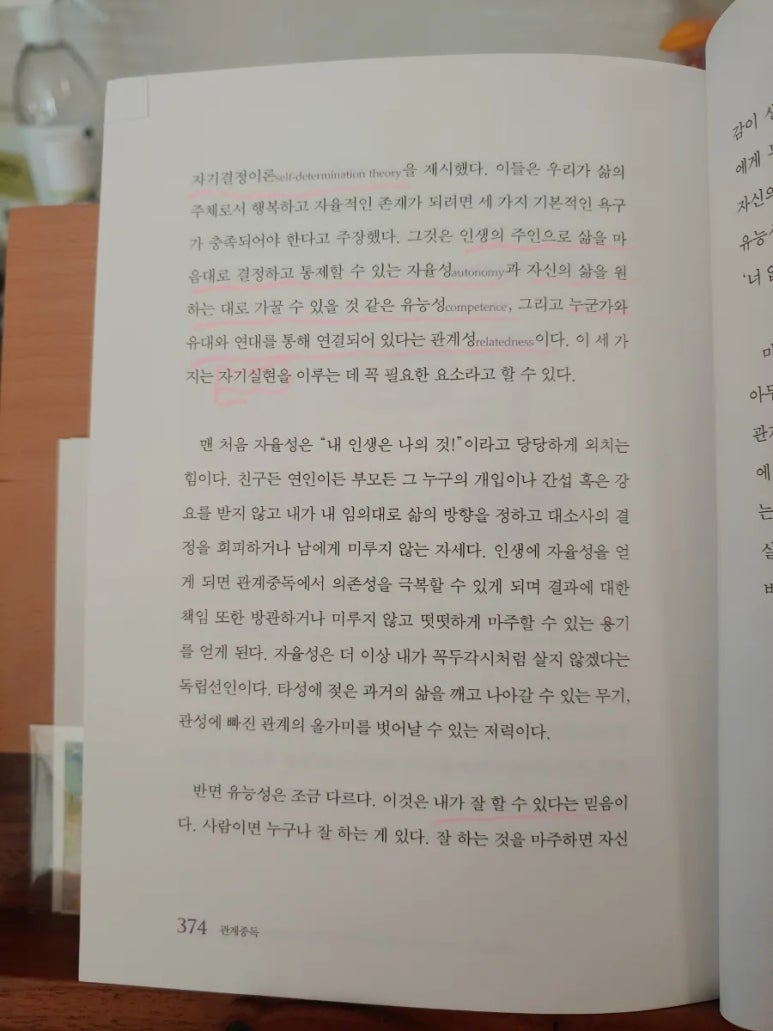 자기결정이론self-determination theory을 제시했다. 이들은 우리가 삶의
주체로서 행복하고 자율적인 존재가 되려면 세 가지 기본적인 욕구
가 충족되어야 한다고 주장했다. 그것은 인생의 주인으로 삶을 마
음대로 결정하고 통제할 수 있는 자율성autonomy과 자신의 삶을 원
하는 대로 가꿀 수 있을 것 같은 유능성competence, 그리고 누군가와
유대와 연대를 통해 연결되어 있다는 관계성relatedness이다. 이 세 가
지는 자기실현을 이루는 데 꼭 필요한 요소라고 할 수 있다.
맨 처음 자율성은 “내 인생은 나의 것!”이라고 당당하게 외치는
힘이다. 친구든 연인이든 부모든 그 누구의 개입이나 간섭 혹은 강
요를 받지 않고 내가 내 임의대로 삶의 방향을 정하고 대소사의 결
정을 회피하거나 남에게 미루지 않는 자세다. 인생에 자율성을 얻
게 되면 관계중독에서 의존성을 극복할 수 있게 되며 결과에 대한
책임 또한 방관하거나 미루지 않고 떳떳하게 마주할 수 있는 용기
를 얻게 된다. 자율성은 더 이상 내가 꼭두각시처럼 살지 않겠다는
독립선언이다. 타성에 젖은 과거의 삶을 깨고 나아갈 수 있는 무기,
관성에 빠진 관계의 올가미를 벗어날 수 있는 저력이다.
반면 유능성은 조금 다르다. 이것은 내가 잘 할 수 있다는 믿음이
다. 사람이면 누구나 잘 하는 게 있다. 잘 하는 것을 마주하면 자신
374 관계중독
감이
에게
자신의
유능
‘너
아무
관
에
는